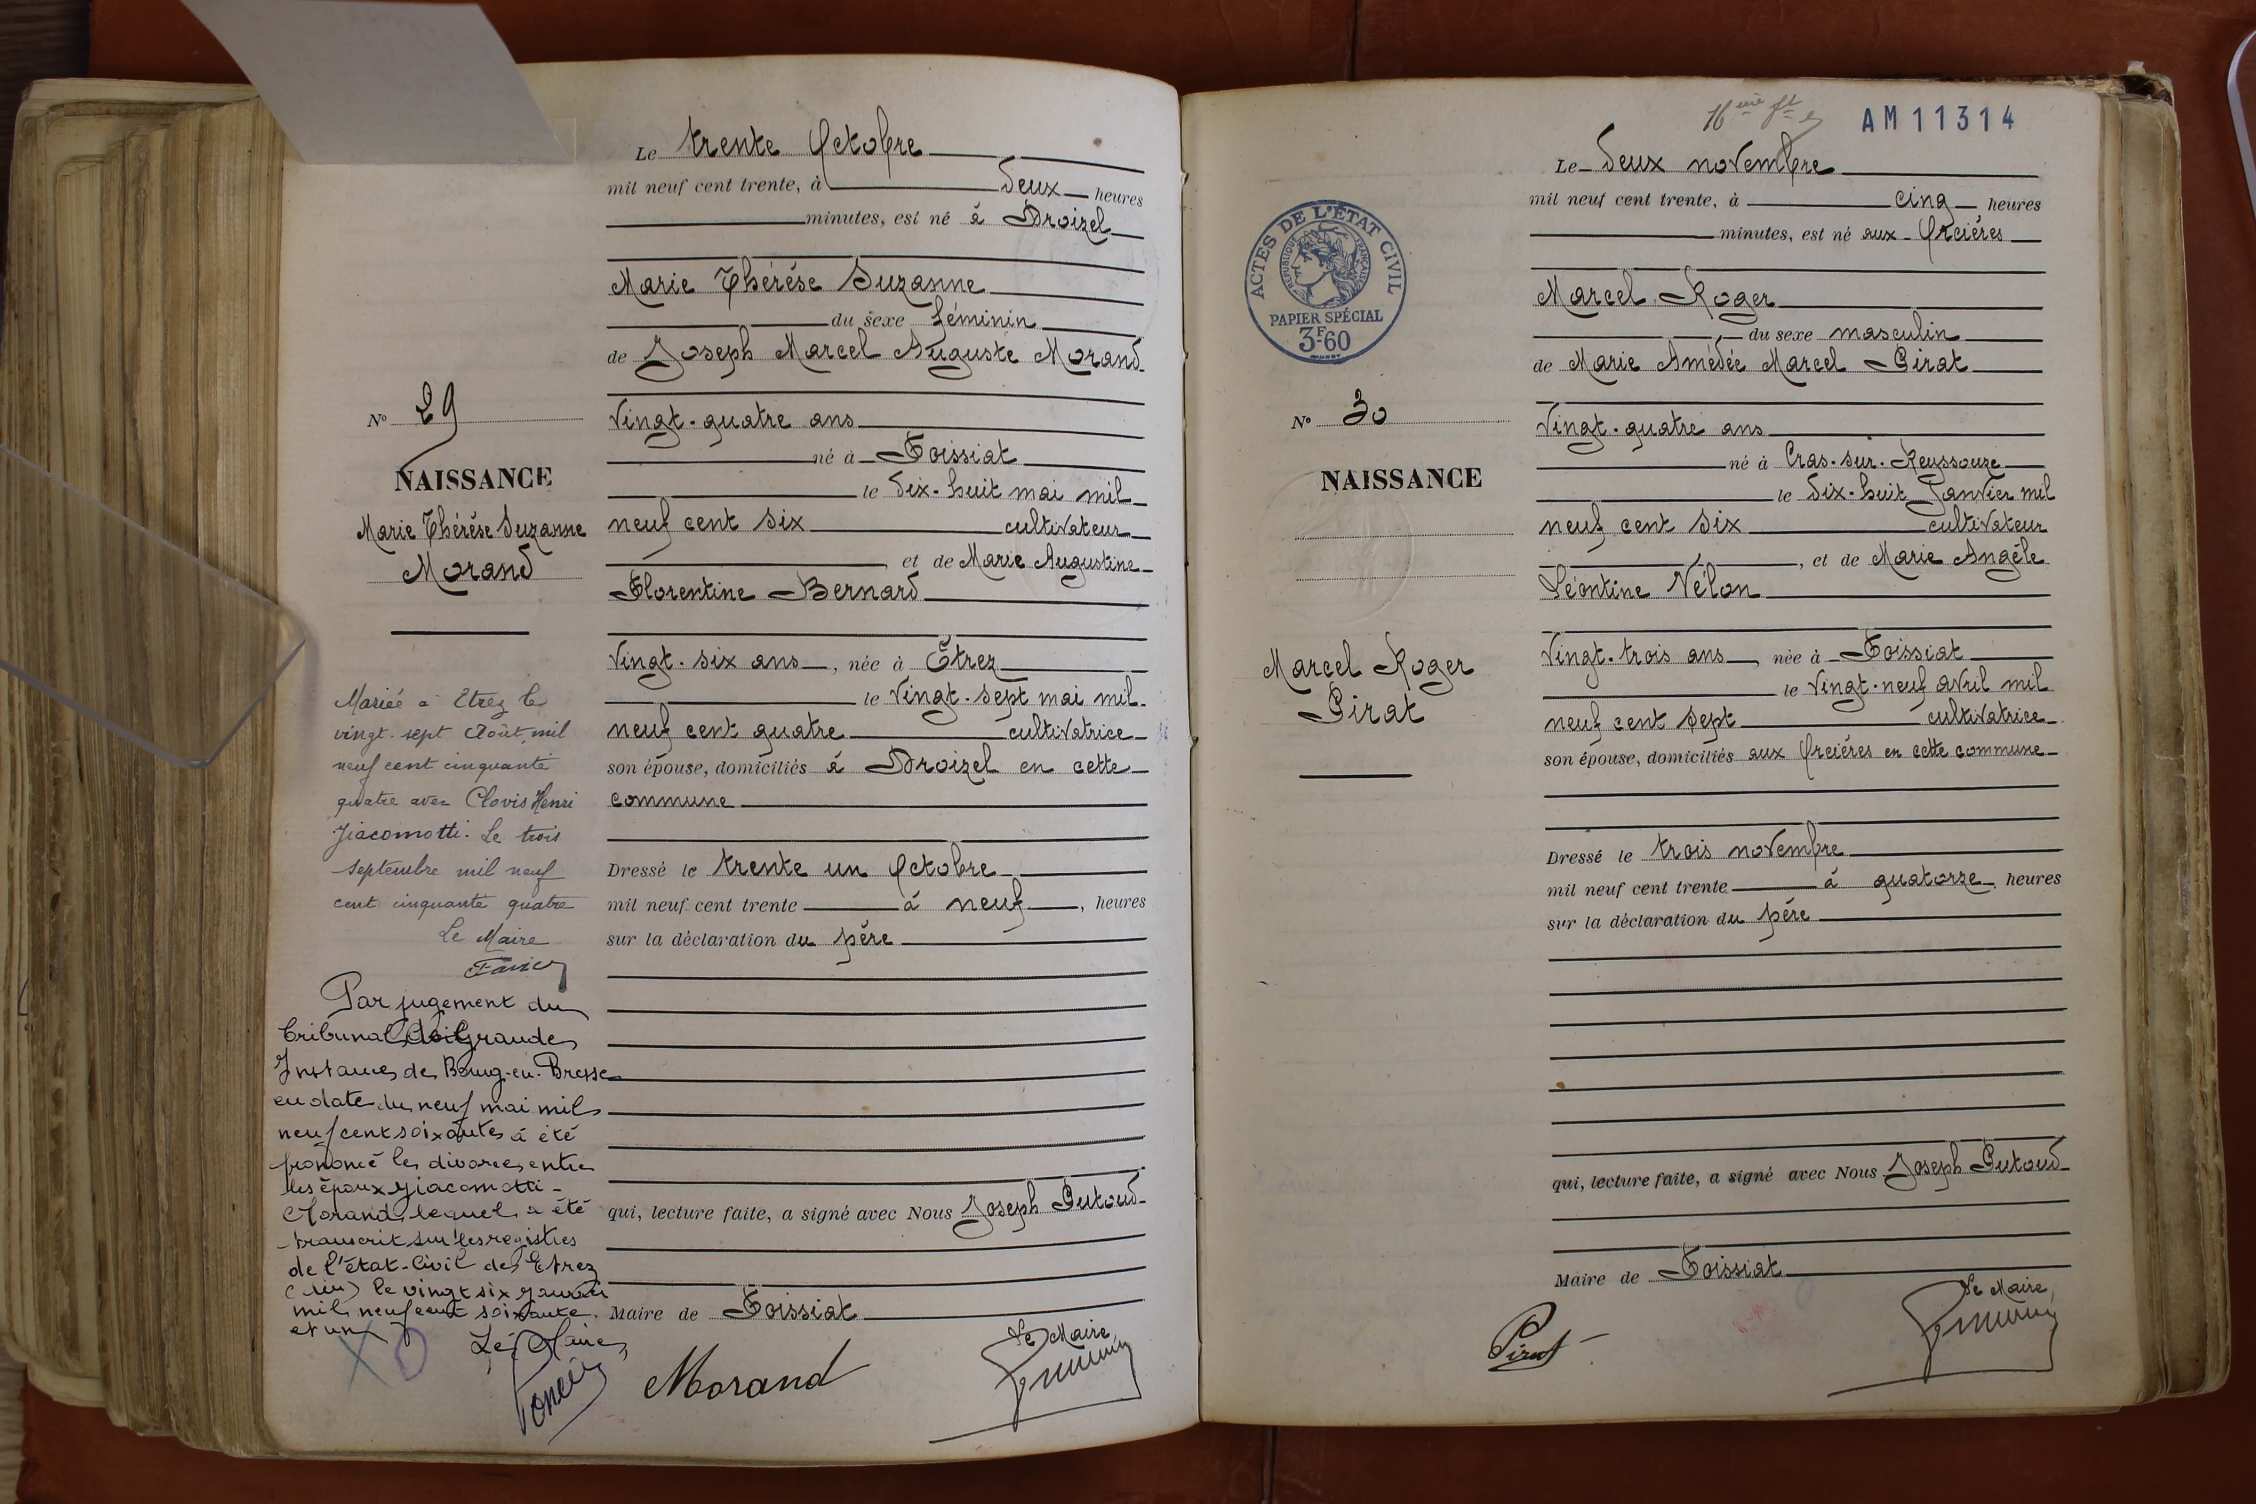 Le trente Octobre
mil neuf cent trente, à deux heures
minutes, est né à Droizel
Marie Thérèse Suzanne
du sexe féminin
de Joseph Marcel Auguste Morand
Vingt-quatre ans
né à Foissiat
le dix-huit mai mil
neuf cent six cultivateur
et de Marie Augustine
Florentine Bernard
Vingt-six ans, née à Étrez
le vingt-sept mai mil
neuf cent quatre cultivatrice
son épouse, domiciliés à Droizel en cette
commune
Dressé le trente un Octobre
mil neuf cent trente à neuf, heures
sur la déclaration du père
qui, lecture faite, a signé avec Nous Joseph Putoud
Maire de Foissiat
Le Maire
Morand
No 29
NAISSANCE
Marie Thérèse Suzanne
Morand
Mariée à Etrez le
vingt-sept Août mil
neuf cent cinquante
quatre avec Clovis Henri
Giacomotti. Le trois
septembre mil neuf
cent cinquante quatre
Le Maire
Par jugement du
tribunal de Grande
Instance de Bourg-en-Bresse
en date du neuf mai mil
neuf cent soixante a été
prononcé le divorce entre
les époux Giacomotti-
Morand lequel a été
transcrit sur les registres
de l'état-Civil de Etrez
(Ain) le vingt six janvier
mil neuf cent soixante
et un
Le Maire
Poncin
16ème ft
AM11314
ACTES DE L'ÉTAT CIVIL
RÉPUBLIQUE FRANÇAISE
PAPIER SPÉCIAL
3F60
No 30
NAISSANCE
Marcel Roger
Pirat
Le deux novembre
mil neuf cent trente, à cinq heures
minutes, est né aux Orcières
Marcel Roger
du sexe masculin
de Marie Amédée Marcel Pirat
Vingt-quatre ans
né à Cras-sur-Reyssouze
le dix-huit Janvier mil
neuf cent six cultivateur
, et de Marie Angèle
Léontine Vélon
Vingt-trois ans, née à Foissiat
le vingt-neuf avril mil
neuf cent sept cultivatrice
son épouse, domiciliés aux Orcières en cette commune
Dressé le trois novembre
mil neuf cent trente à quatorze heures
sur la déclaration du père
qui, lecture faite, a signé avec Nous Joseph Putoud
Maire de Foissiat
Le Maire
Pirat